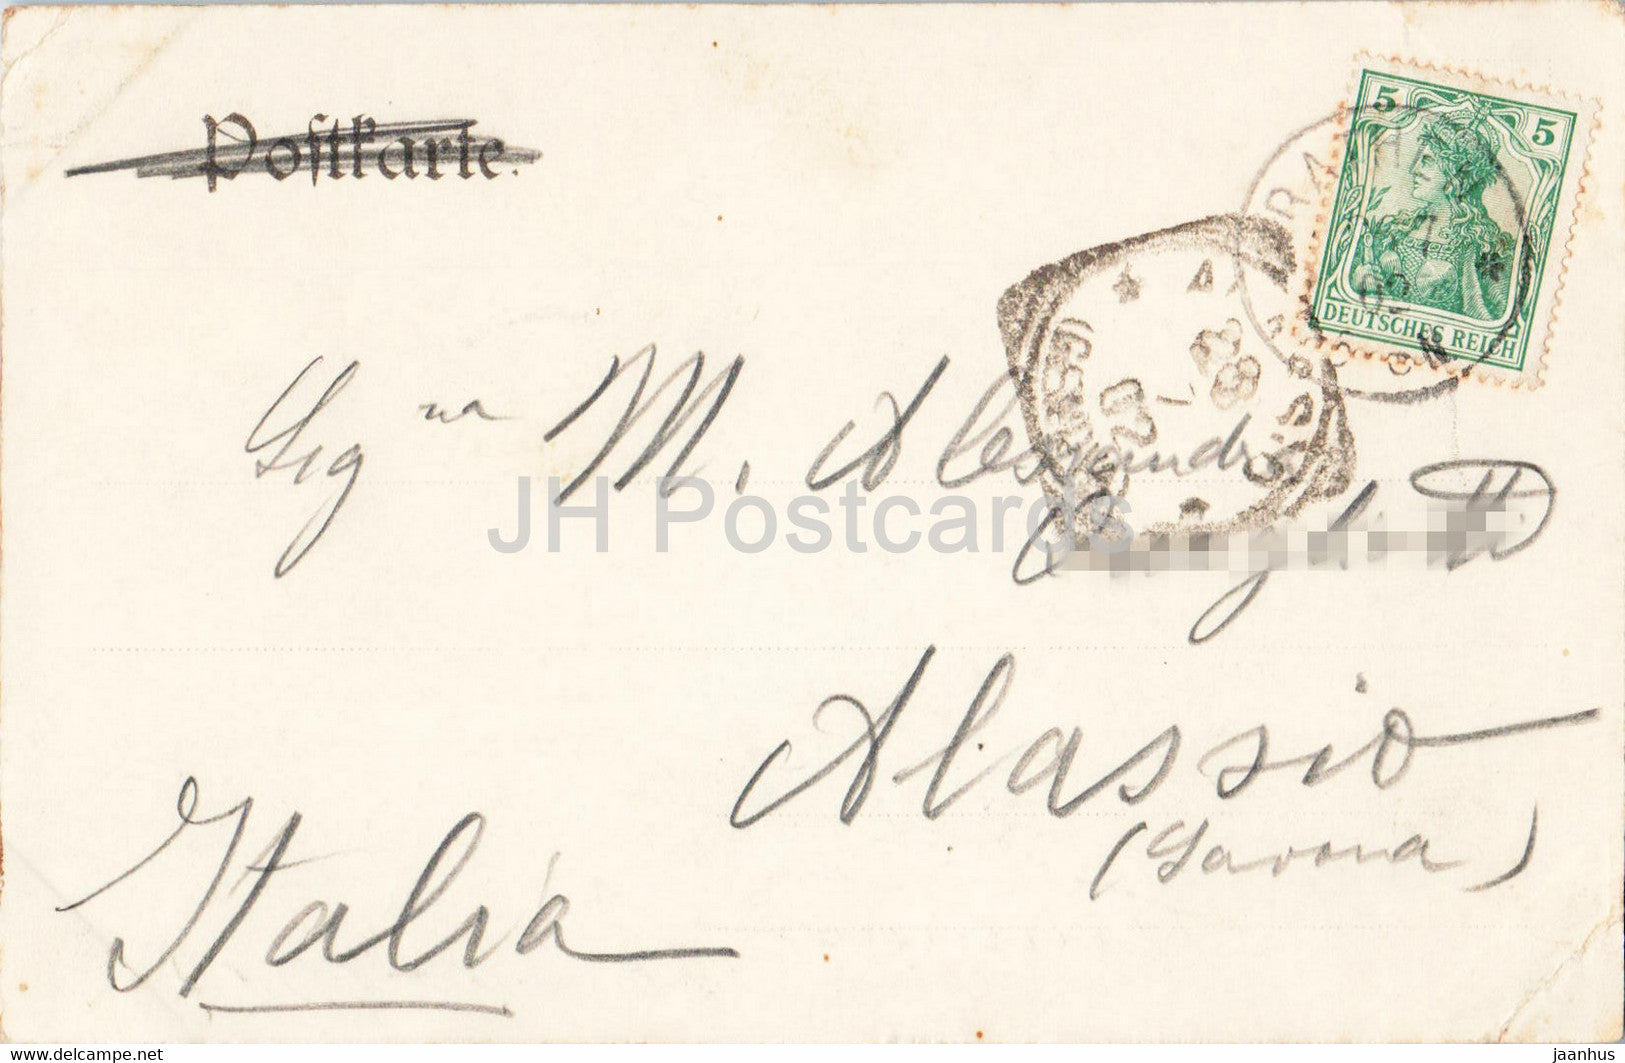 Postkarte.
5 5
DEUTSCHES REICH
Sig na M. Alessandra
Alassio
(Savona)
Italia
JH Postcards
www.delcampe.net
jaanhus